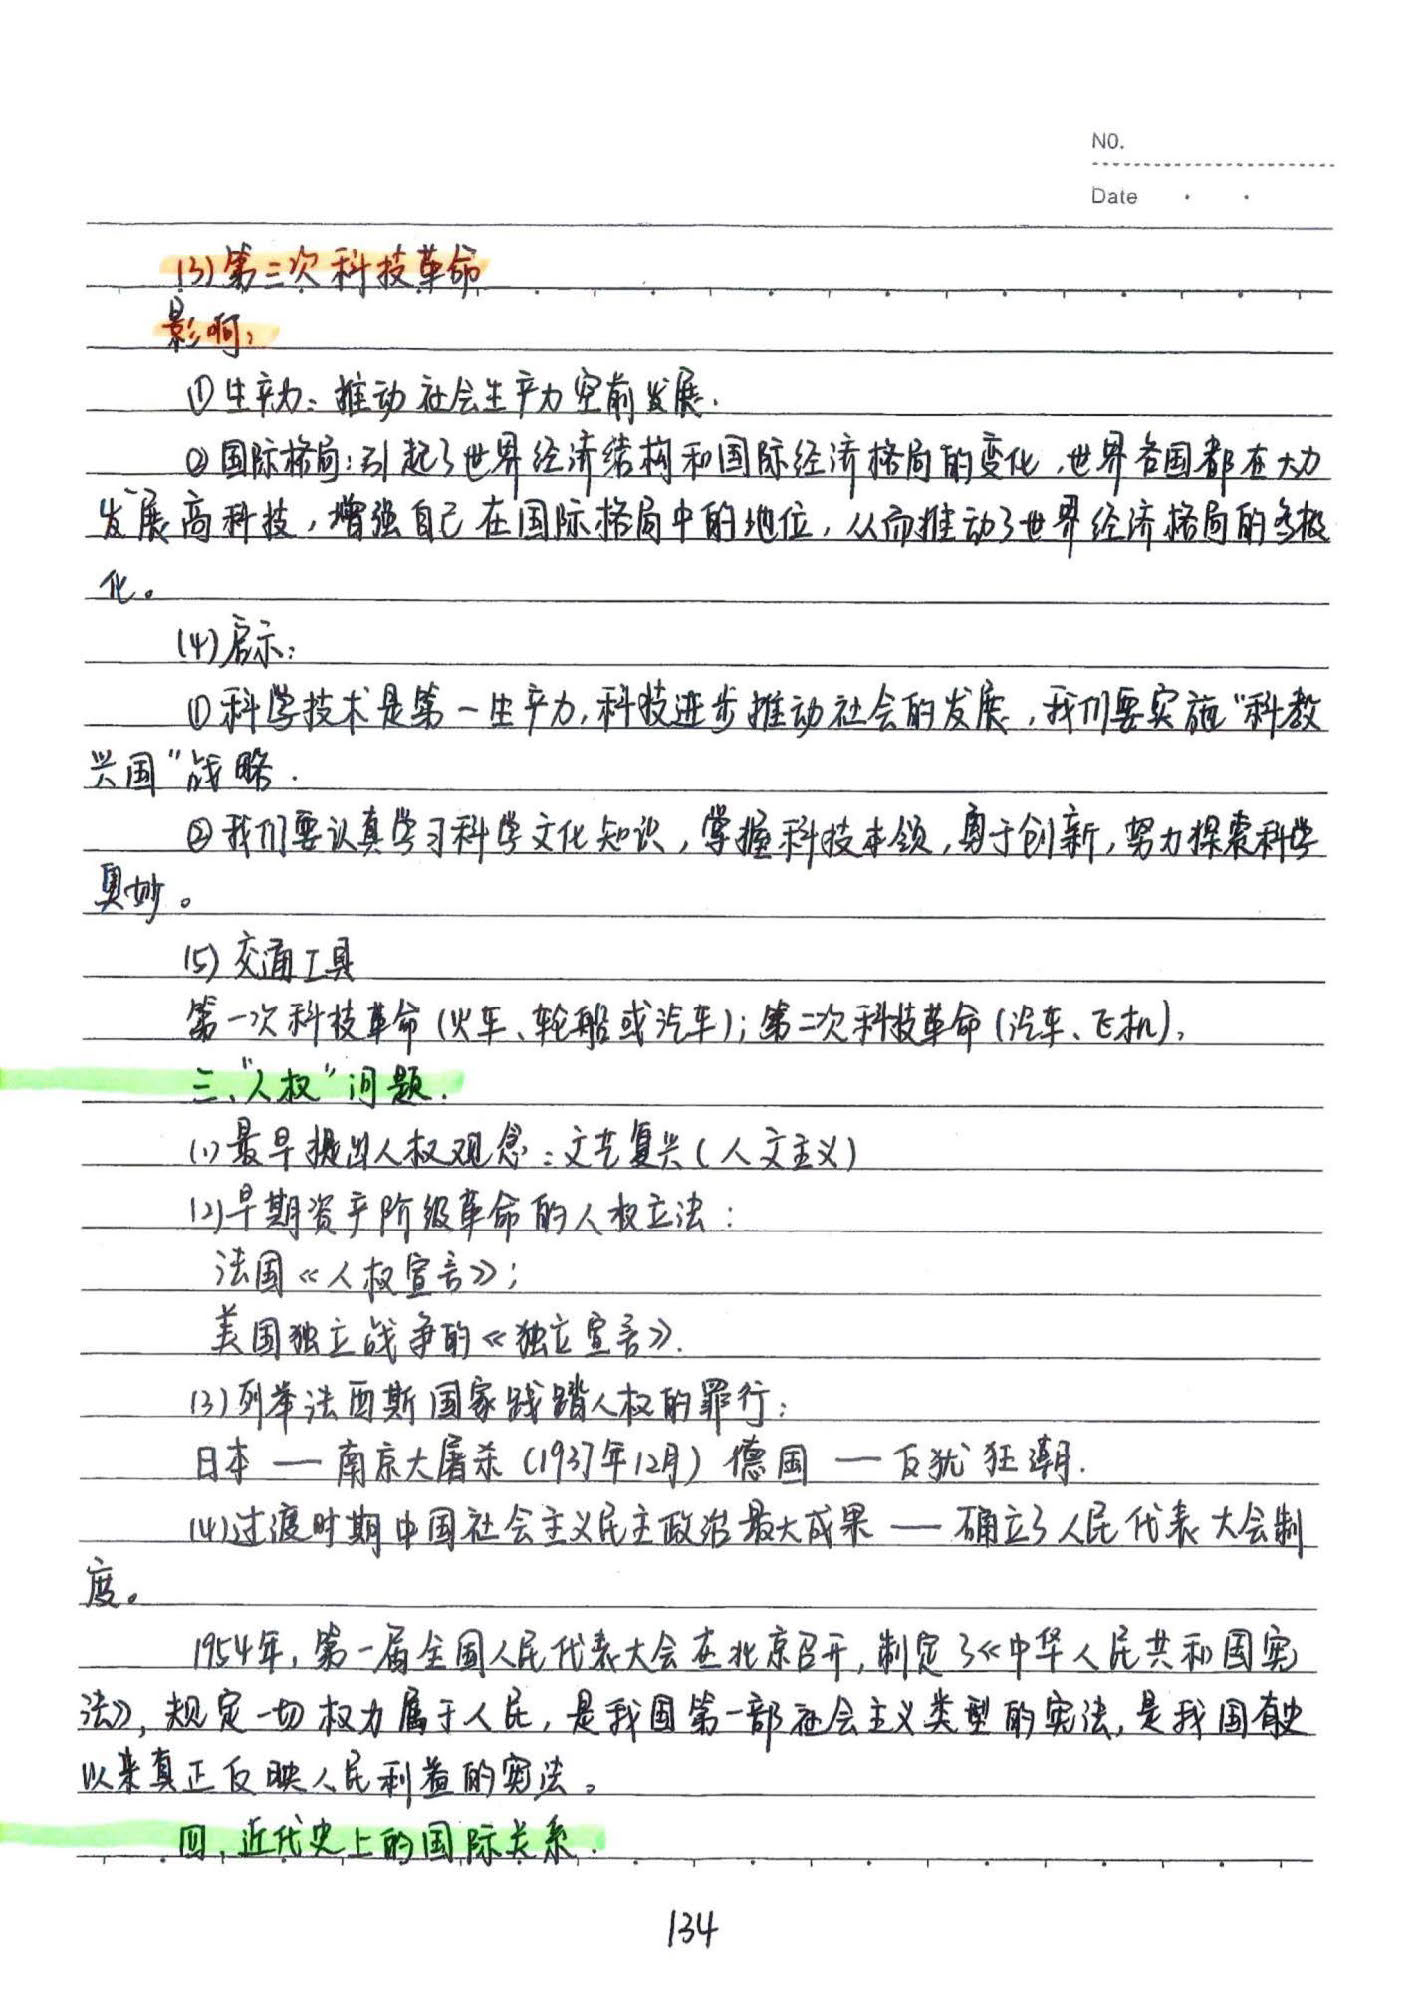 NO.
Date
(3)第三次科技革命
影响:
①生产力:推动社会生产力空前发展.
②国际格局:引起了世界经济结构和国际经济格局的变化,世界各国都在大力
发展高科技,增强自己在国际格局中的地位,从而推动了世界经济格局的多极
化。
(4)启示:
①科学技术是第一生产力,科技进步推动社会的发展,我们要实施“科教
兴国”战略.
②我们要认真学习科学文化知识,掌握科技本领,勇于创新,努力探索科学
奥妙。
(5)交通工具
第一次科技革命(火车、轮船或汽车);第二次科技革命(汽车、飞机),
三、“人权”问题.
(1)最早提出人权观念:文艺复兴(人文主义)
(2)早期资产阶级革命的人权立法:
法国《人权宣言》;
美国独立战争的《独立宣言》.
(3)列举法西斯国家践踏人权的罪行:
日本—南京大屠杀(1937年12月)德国—反犹狂潮.
(4)过渡时期中国社会主义民主政治最大成果—确立了人民代表大会制
度。
1954年,第一届全国人民代表大会在北京召开,制定了《中华人民共和国宪
法》,规定一切权力属于人民,是我国第一部社会主义类型的宪法,是我国有史
以来真正反映人民利益的宪法。
四、近代史上的国际关系.
134